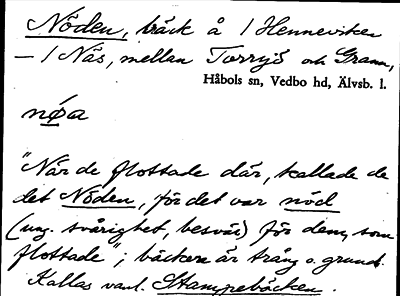 Nöden, bäck å 1 Henneviken
— 1 Näs, mellan Torrsjö och Grann,
Håbols sn, Vedbo hd, Älvsb. l.
nøa
"När de flottade där, kallade de
det Nöden, för det var nöd
(ung. svårighet, besvär) för dem, som
flottade"; bäcken är trång o. grund.
Kallas vanl. Stampebäcken.